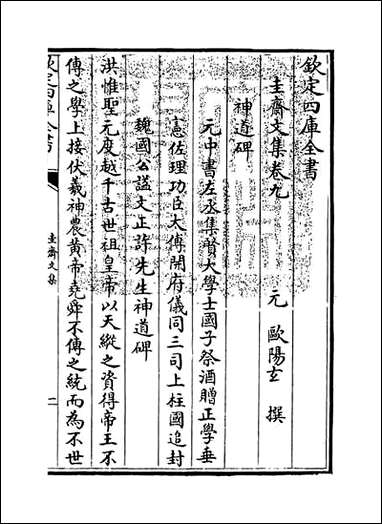 欽定四庫全書
圭齋文集卷九
元 歐陽玄 撰
神道碑
元中書左丞集賢大學士國子祭酒贈正學垂
憲佐理功臣太傅開府儀同三司上柱國追封
魏國公謚文正許先生神道碑
洪惟聖元度越千古世祖皇帝以天縱之資得帝王不
傳之學上接伏羲神農黃帝堯舜不傳之統而為不世
欽定四庫全書
圭齋文集